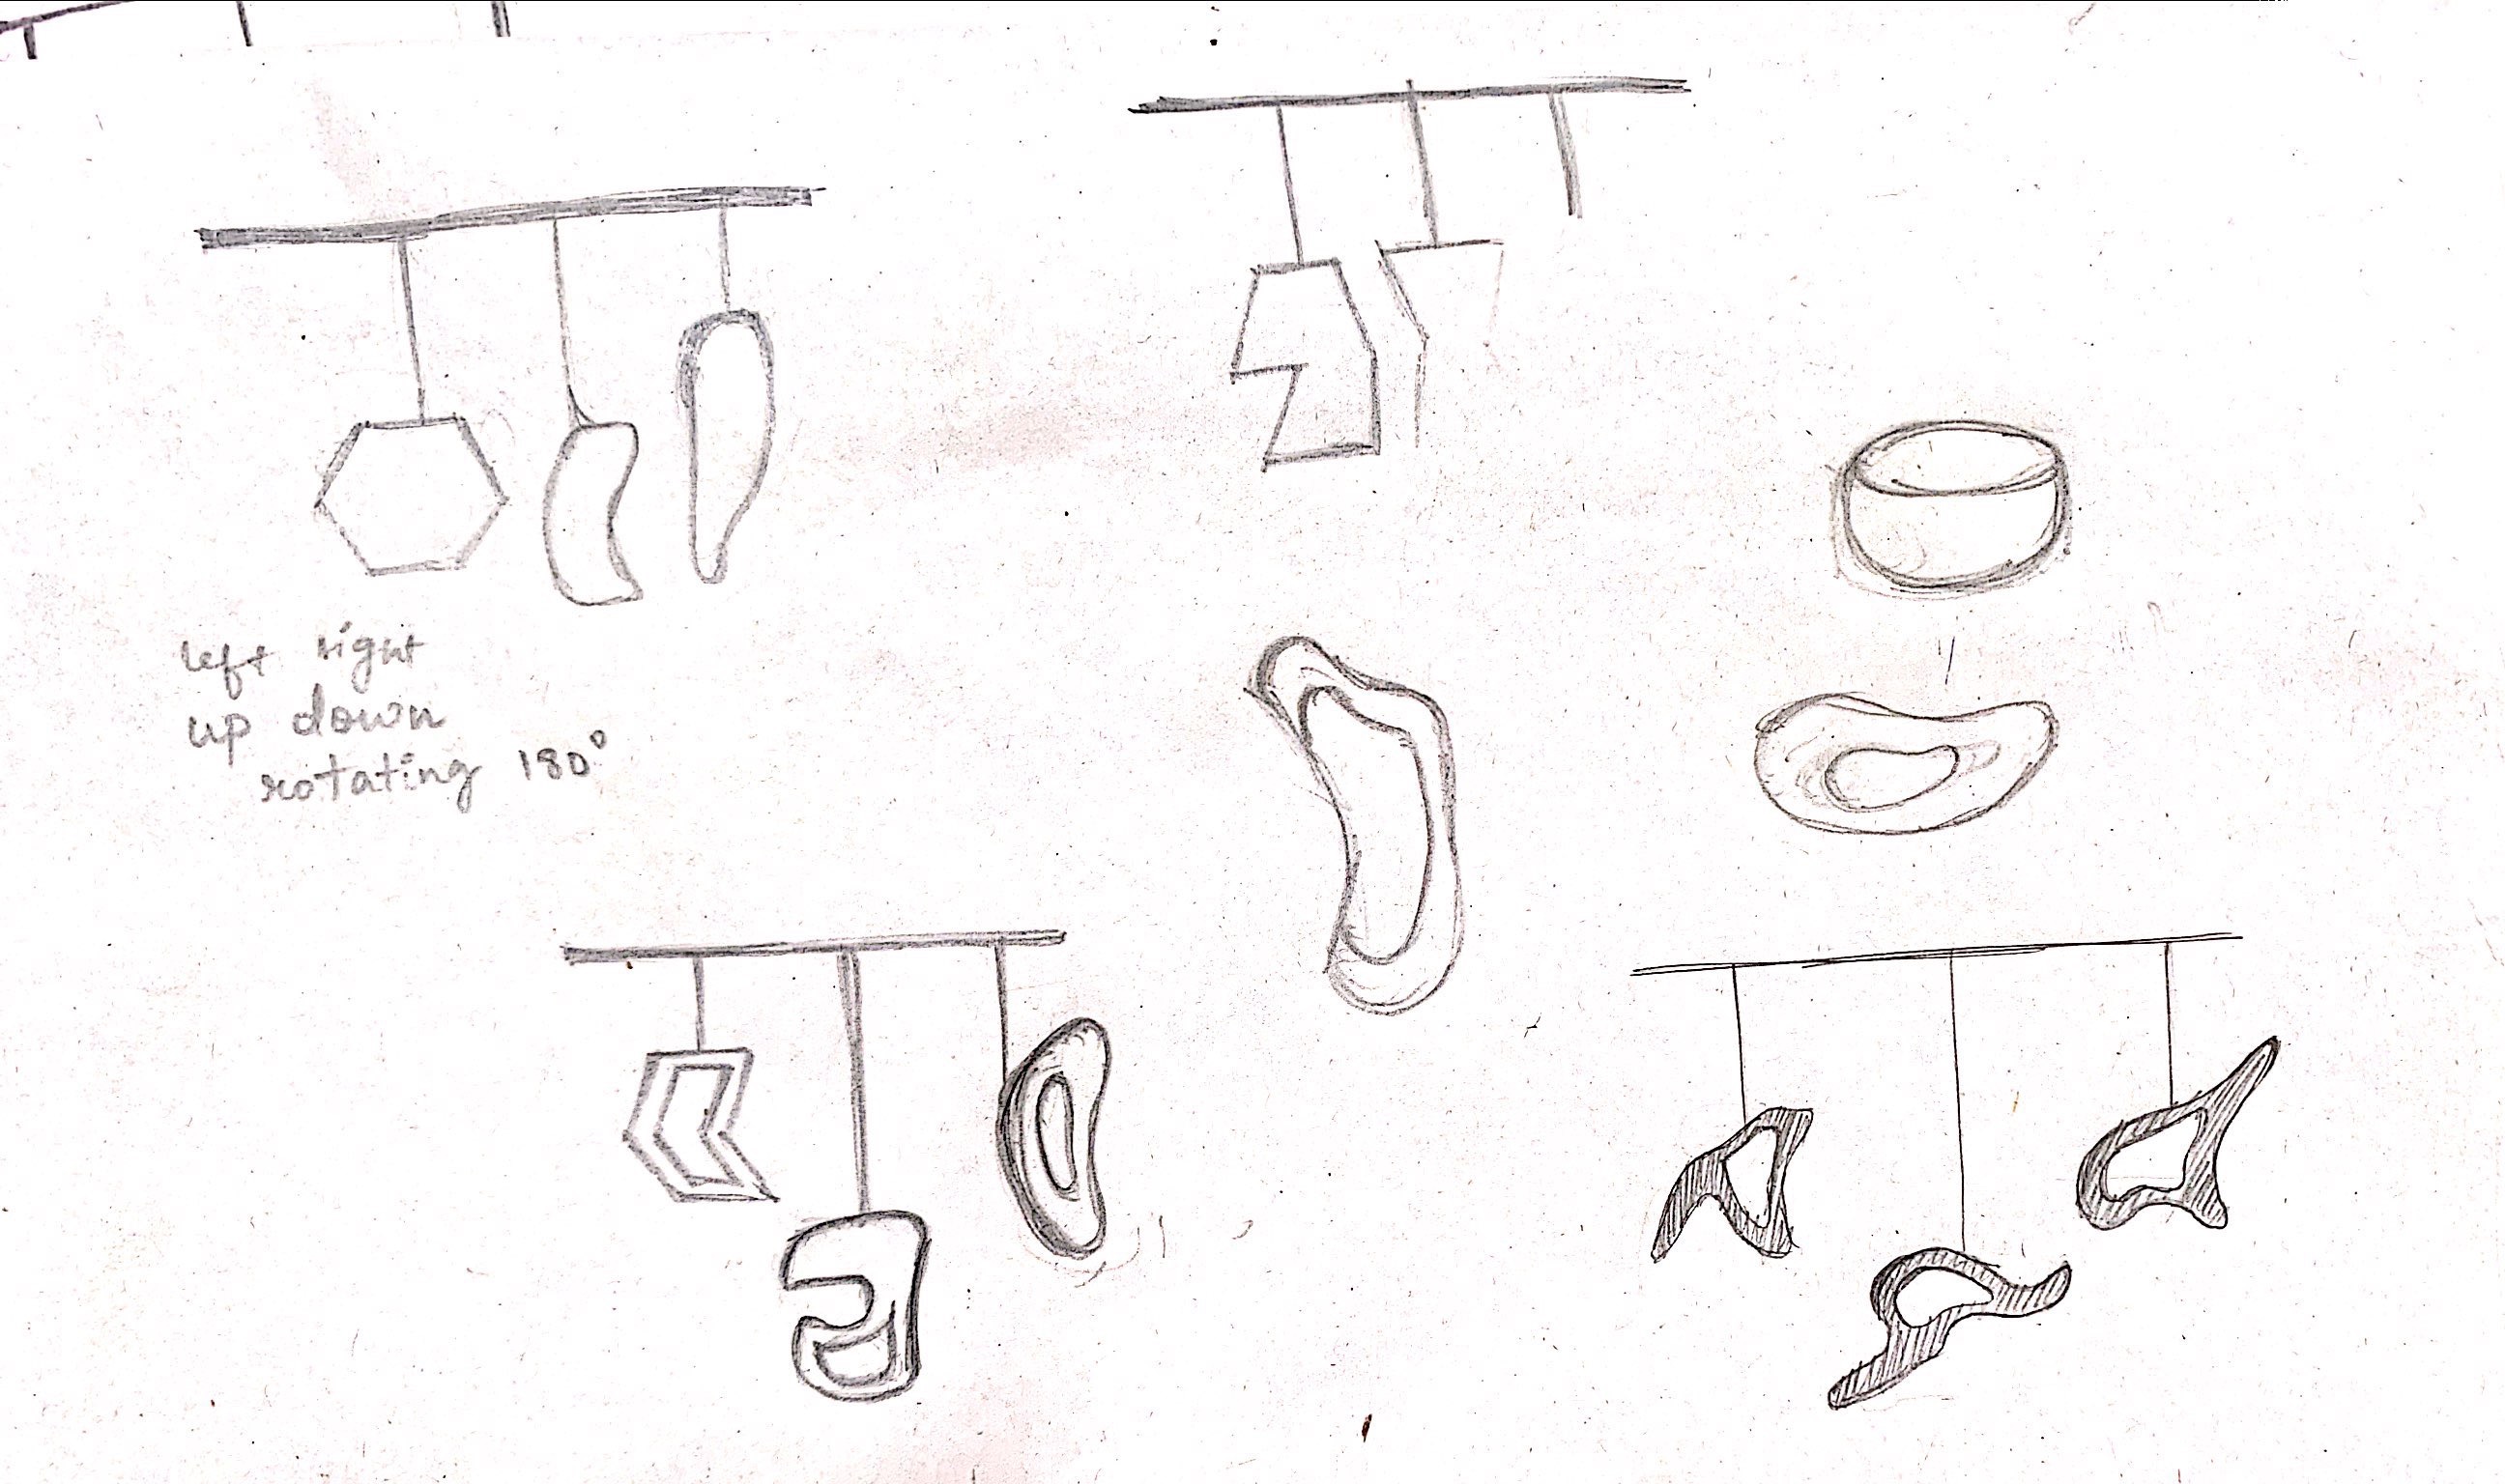 left right
up down
rotating 180°